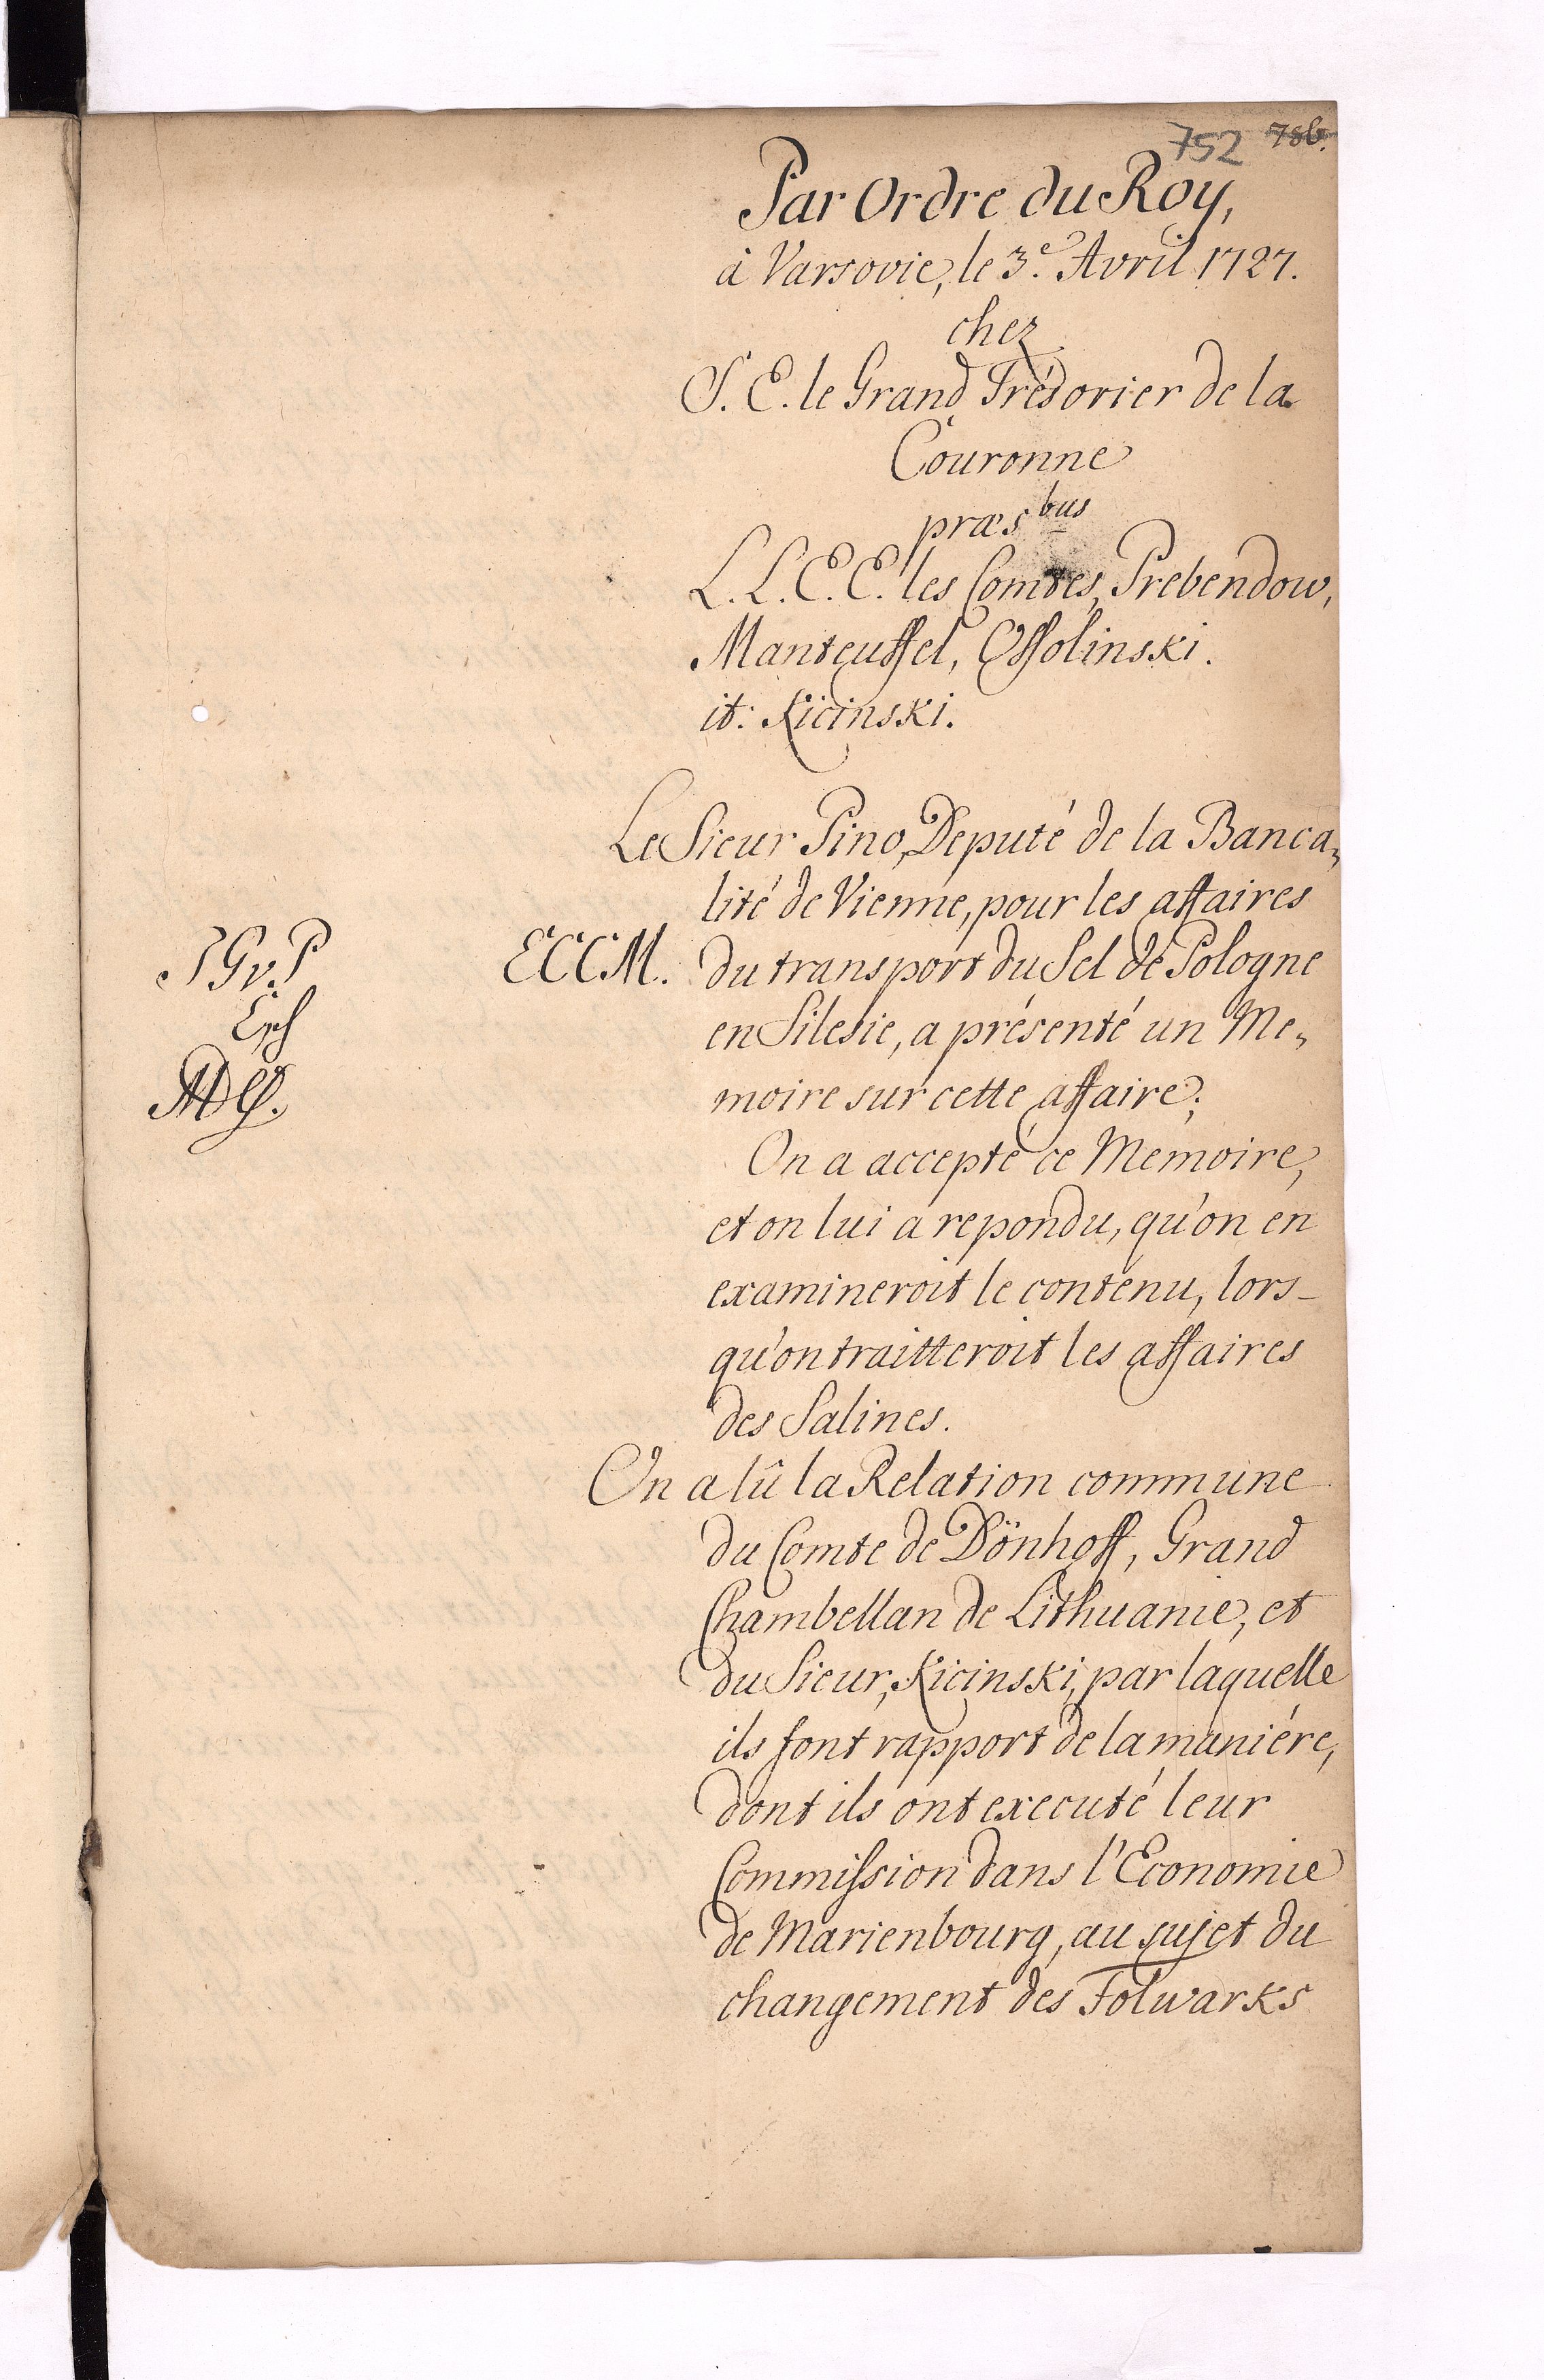 752 786.
Par Ordre du Roy,
à Varsovie, le 3.e Avril 1727.
chez
S. E. le Grand Trésorier de la
Couronne
præs bus
L. L. E. E. les Comtes, Prebendow,
Manteuffel, Ossolinski.
it: Kicinski.
Le Sieur Pino, Deputé de la Banca„
lité de Vienne, pour les affaires
ECCM. du transport du Sel de Pologne
en Silesie, a présenté un Me„
moire sur cette affaire;
On a accepté ce Memoire,
et on lui a repondu, qu'on en
examineroit le contenu, lors-
qu'on traitteroit les affaires
des Salines.
On a lû la Relation commune
du Comte de Dönhoff, Grand
Chambellan de Lithuanie, et
du Sieur, Kicinski, par laquelle
ils font rapport de la maniére,
dont ils ont executé leur
Commission dans l'Economie
de Marienbourg, au sujet du
changement des Folwarks